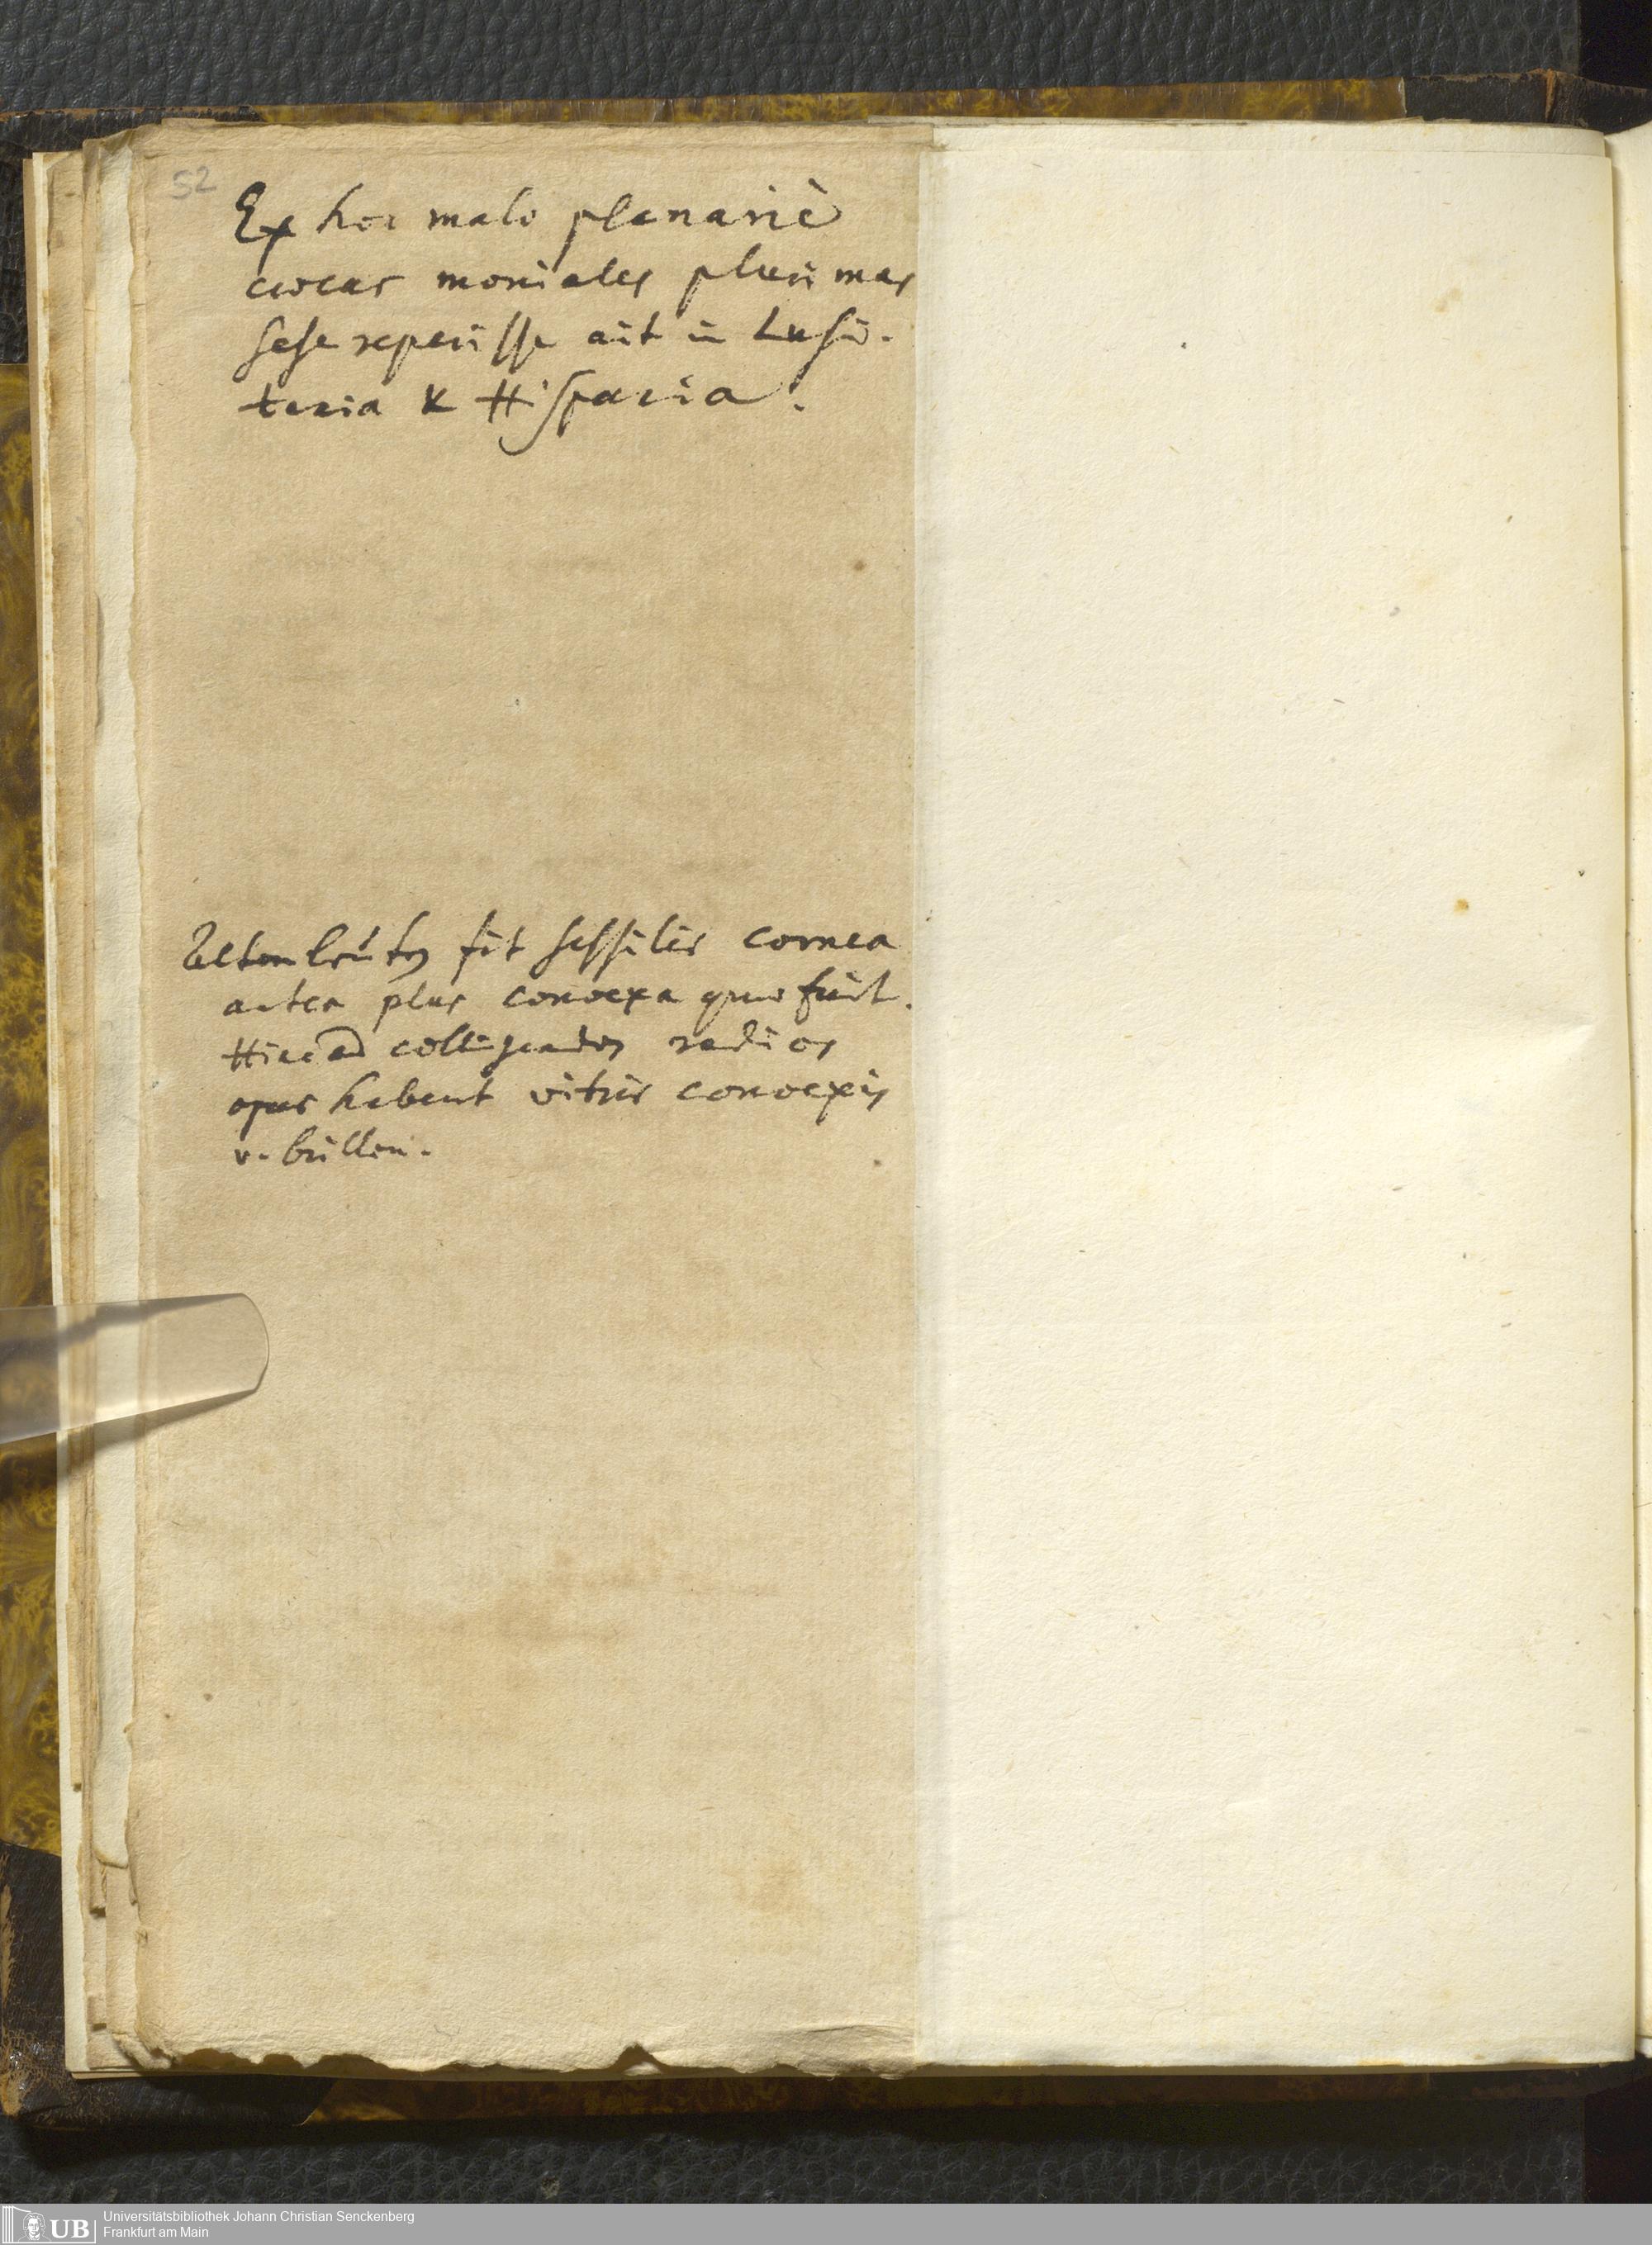 52
Ex hoc malo plenariè
cæcas moniales plurimas
sese reperisse ait in Lusi-
tania & Hispania.
Alten leuten fit sessilis cornea
antea plus convexa quæ fuit.
Hinc ad colligendos radios
opus habent vitris convexis
v. brillen.
UB
Universitätsbibliothek Johann Christian Senckenberg
Frankfurt am Main